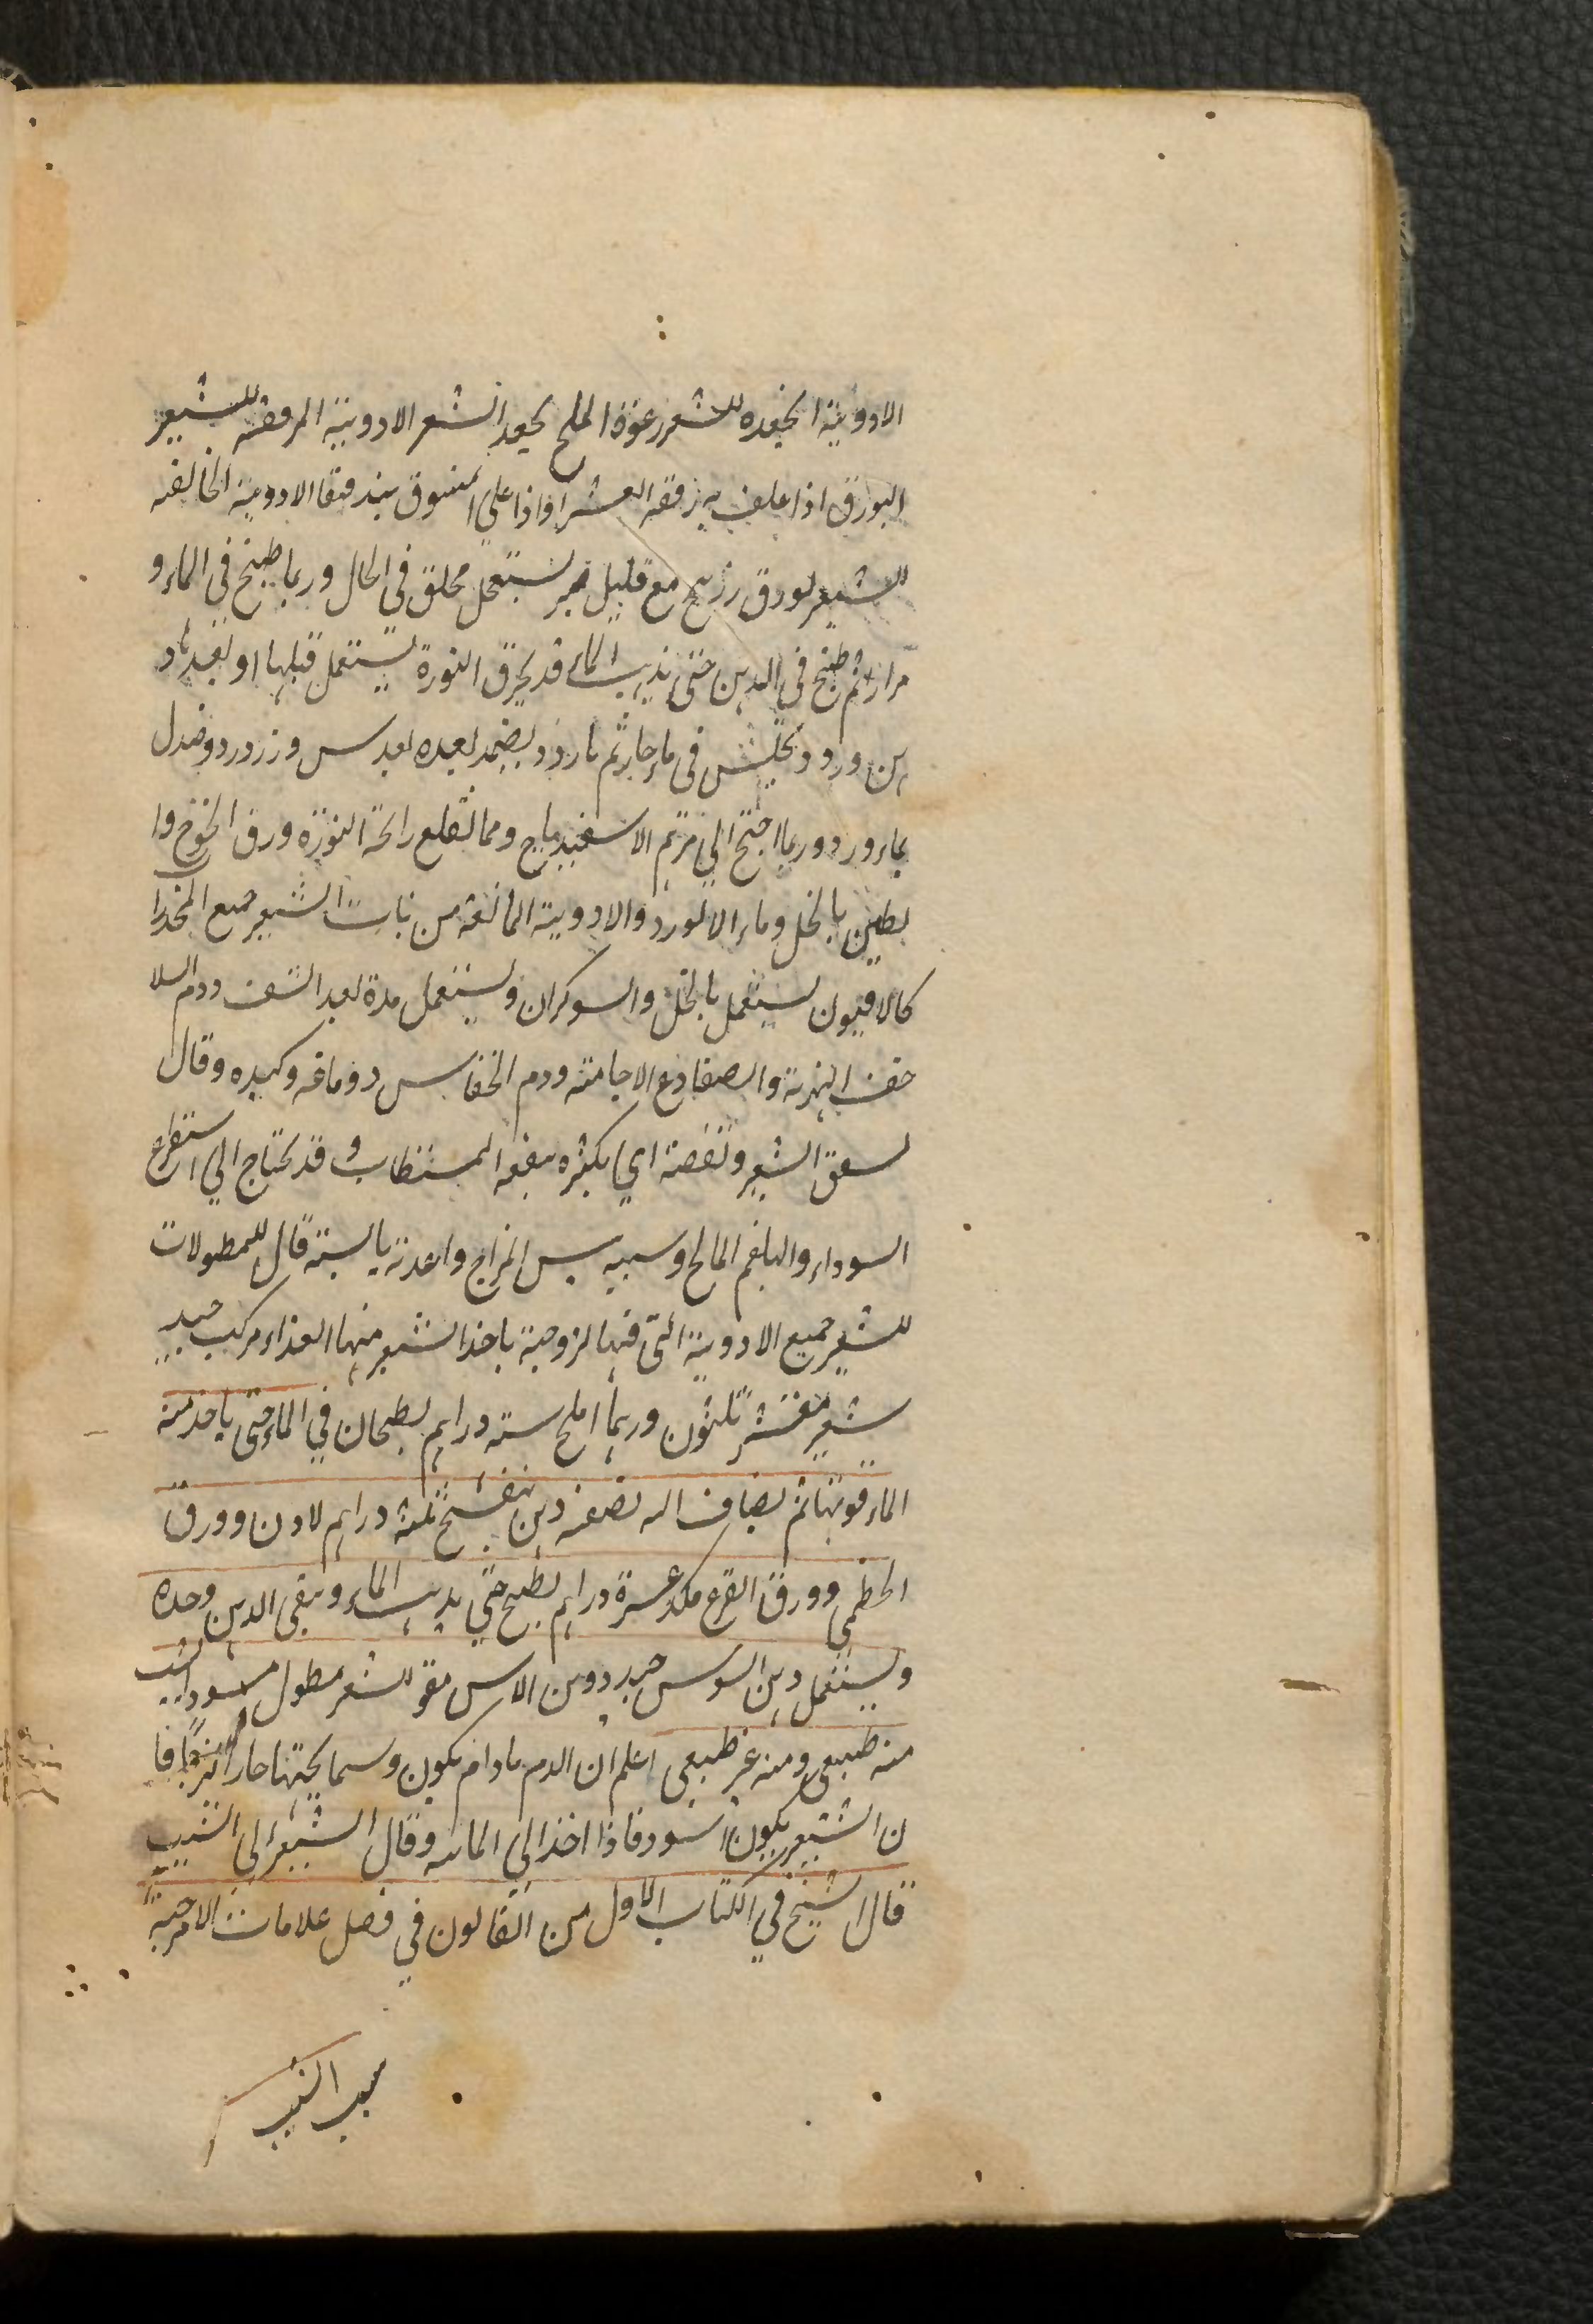 الادوية المجعده للشعر رغوة الملح يجعد الشعر الادوية المرققه للشعير
البورق اذا علف به رققه العشر واذا على المنسوق بندقتقا الادوية الحالقه
للشعير لورق زرنيخ مع قليل خبر يستعمل محلق في الحال وربما طبخ في الماء و
مرارا ثم طبخ في الدهن حتى يذيب الماء قد يحرق النورة يستعمل قبلها او بعد باد
هن ورد ويجلس في ماء حار ثم بارد ويضمد بعده بعدس وزرورد وصندل
بماء ورد وربما احتج الي مرهم الاسفيدباج ومما تقلع رائحة النوره ورق الخوخ وا
لطين بالخل وماء الالورد والادوية المانعة من نبات الشعير جميع المخدرا
كالافيون يستعمل بالخل والسوكران ويستعمل مدة بعد النتف ودم السلا
حف النهرية والصفادع الاجامية ودم الخفاس ودماغه وكبده وقال
لسعق الشعير ونقصة اي يكثره ينفعه المستطاب وقد يحتاج الي استفراغ
السوداء والبلغم المالح وسببه يبس المزاج واغذية يابسة قال للمطولات
للشعير جميع الادوية التى فيها لزوجية ياخذ الشعير منها الغذاء مركب جيد
شعير مقشر ثلثون وربما املح ستة دراهم يطبخان في الماء حتى ياخذ منه
الماء قوتها ثم يضاف اليه نصفه دهن بنفسج ثلثه دراهم لادن وورق
الخطمي وورق القرع مكد عشرة دراهم يطبخ حتى يذيب الماء ويبقى الدهن وحده
ويستعمل دهن السوس جيد دوهن الاس مقو للشعر مطول مسود الشيب
منه طبيعي ومنه غير طبيعى اعلم ان الدم مادام يكون وسما يجتها حارا لزجا فا
ن الشعير يكون اسود فاذا اخذ الي المائيه وقال الشعير الي الشيب
قال الشيخ في الكتاب الاول من القانون في فصل علامات الامزجة
سبب الشيب